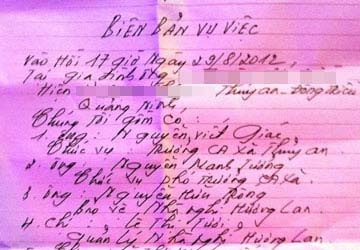 BIÊN BẢN VỤ VIỆC
Vào Hồi 17 giờ Ngày 29/8/2012,
Tại gia đình ông
Hiên Thủy an - Đông triều
Quảng Ninh,
Chúng Tôi gồm Có :
1. ông : Nguyễn Viết Giác
Chức vụ : Trưởng CA Xã Thủy an
2. ông : Nguyễn Mạnh Tường
Chức vụ Phó Trưởng CA xã.
3. ông : Nguyễn Hữu Rộng
Bảo vệ Nhà nghỉ Hương Lan.
4. Chị : Lê Thị Tươi.
Quản Lý Nhà nghỉ Hương Lan